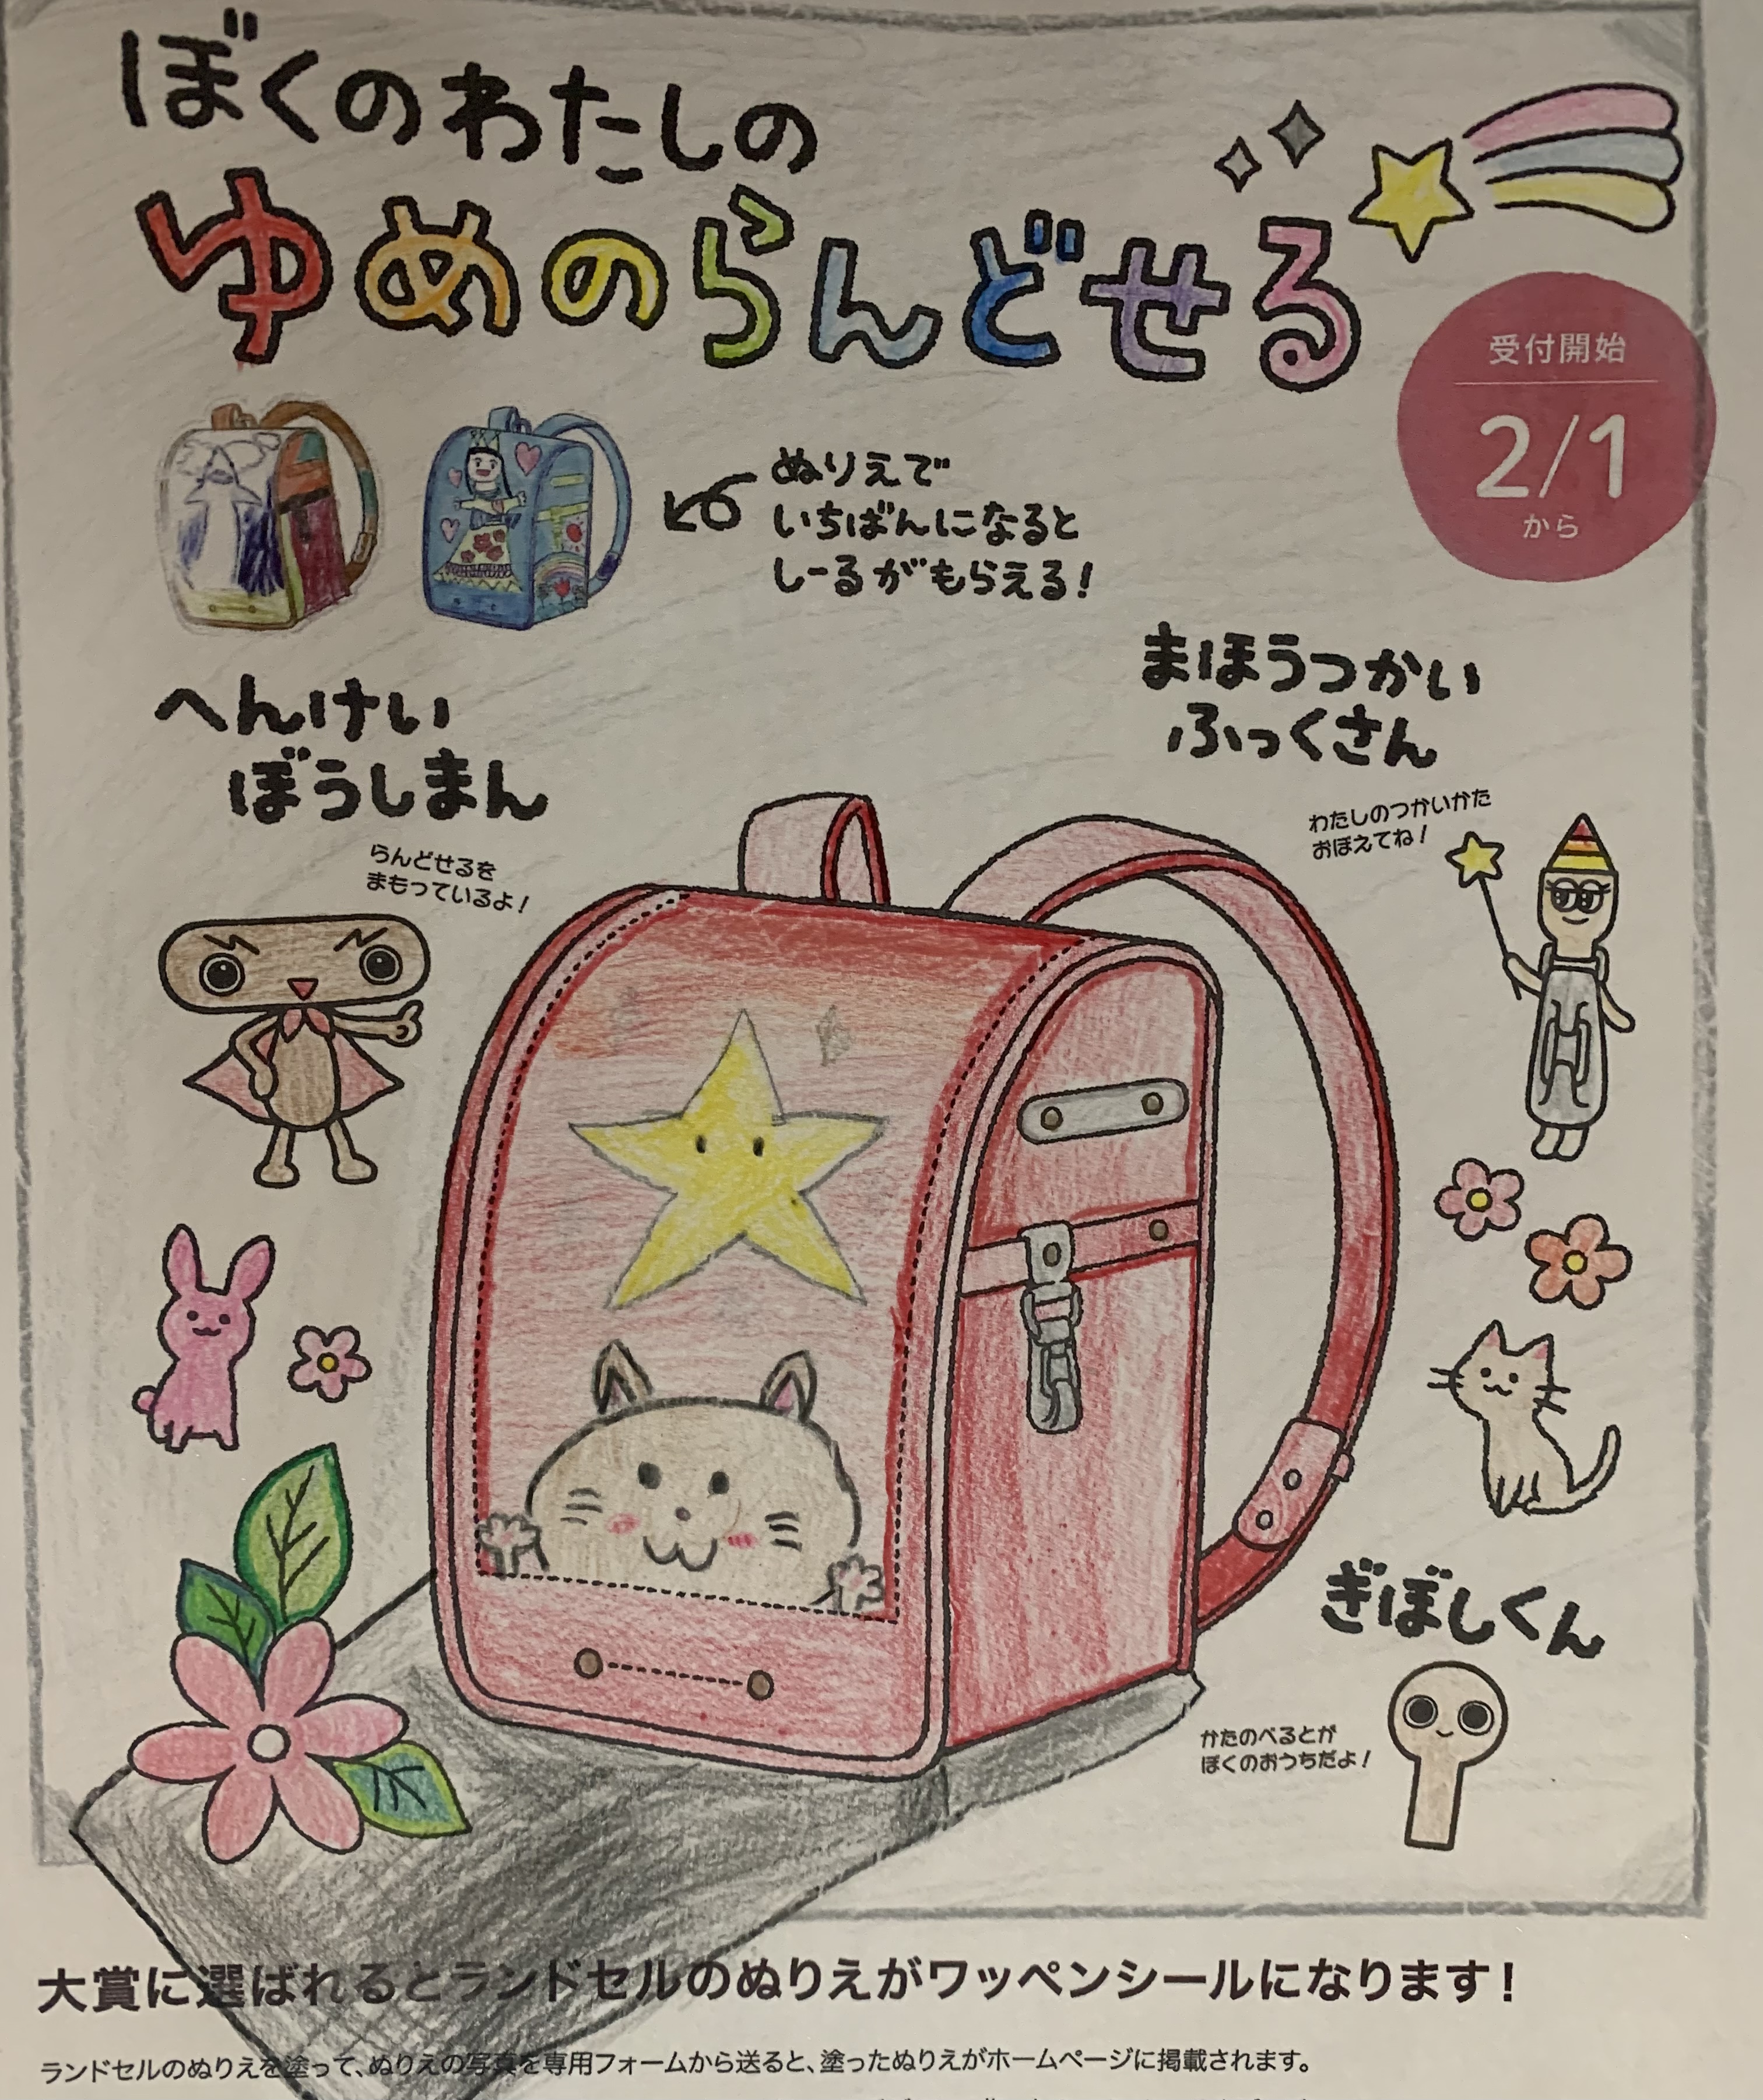 ぼくのわたしの
ゆめのらんどせる
受付開始
2/1
から
ぬりえで
いちばんになると
しーるがもらえる！
まほうつかい
ふっくさん
わたしのつかいかた
おぼえてね！
へんけい
ぼうしまん
らんどせるを
まもっているよ！
ぎぼしくん
かたのべるとが
ぼくのおうちだよ！
大賞に選ばれるとランドセルのぬりえがワッペンシールになります！
ランドセルのぬりえを塗って、ぬりえの写真を専用フォームから送ると、塗ったぬりえがホームページに掲載されます。